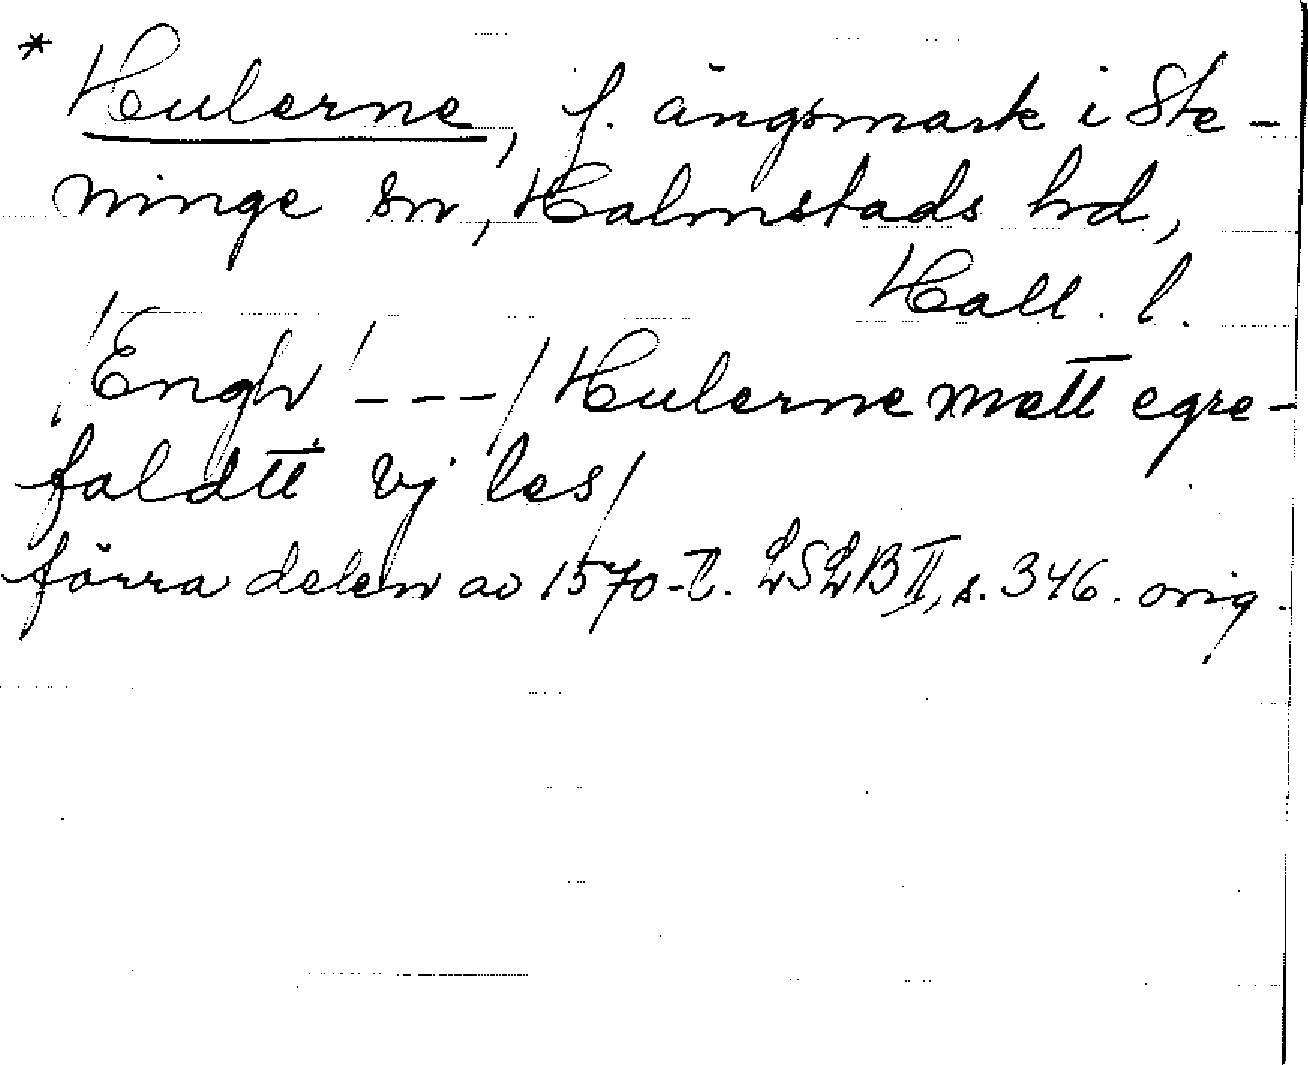 * Hulerne, f. ängsmark i Ste-
ninge sn, Halmstads hd,
Hall. l.
/ Engh / --- / Hulerne mett egre-
faldtt vj les /
förra delen av 1570-t. LSLB II, s. 346. orig.